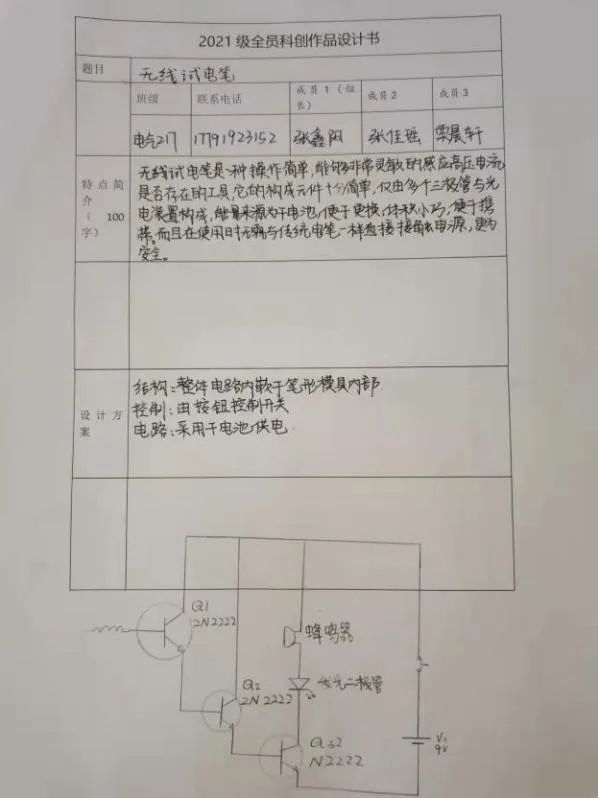 2021 级全员科创作品设计书
题目 无线试电笔
班级 联系电话 成员 1（组长） 成员 2 成员 3
电气217 17791923152 张鑫阳 张佳瑶 栾晨轩
特点简介（100字）
无线试电笔是一种操作简单,能够非常灵敏的感应高压电流
是否存在的工具,它的构成元件十分简单,仅由多个三极管与光
电装置构成,能量来源为干电池,便于更换,体积小巧,便于携
带,而且在使用时无需与传统电笔一样直接接触电源,更为
安全。
设计方案
结构:整体电路内嵌于笔形模具内部
控制:由按钮控制开关
电路:采用干电池供电.
Q1
2N2222
蜂鸣器
Q2
2N2222
发光二极管
Q32
N2222
V1
9V